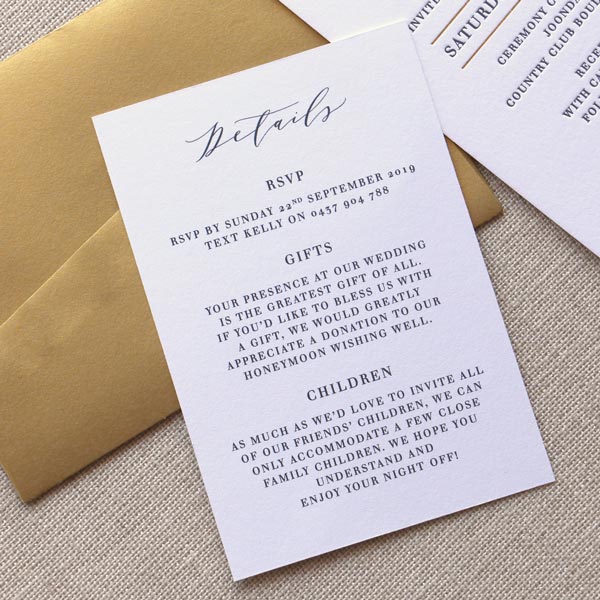 Details
RSVP
RSVP BY SUNDAY 22ND SEPTEMBER 2019
TEXT KELLY ON 0437 904 788
GIFTS
YOUR PRESENCE AT OUR WEDDING
IS THE GREATEST GIFT OF ALL.
IF YOU'D LIKE TO BLESS US WITH
A GIFT, WE WOULD GREATLY
APPRECIATE A DONATION TO OUR
HONEYMOON WISHING WELL.
CHILDREN
AS MUCH AS WE'D LOVE TO INVITE ALL
OF OUR FRIENDS' CHILDREN, WE CAN
ONLY ACCOMMODATE A FEW CLOSE
FAMILY CHILDREN. WE HOPE YOU
UNDERSTAND AND
ENJOY YOUR NIGHT OFF!
INVITE
SATURD
CEREMONY C
JOOND
COUNTRY CLUB BOUL
RECE
WITH CA
FOL